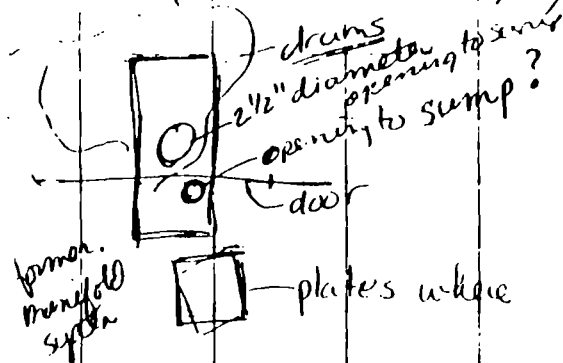 drums
2 1/2" diameter
opening to sump
opening to sump?
door
former
manifold
system
plates where